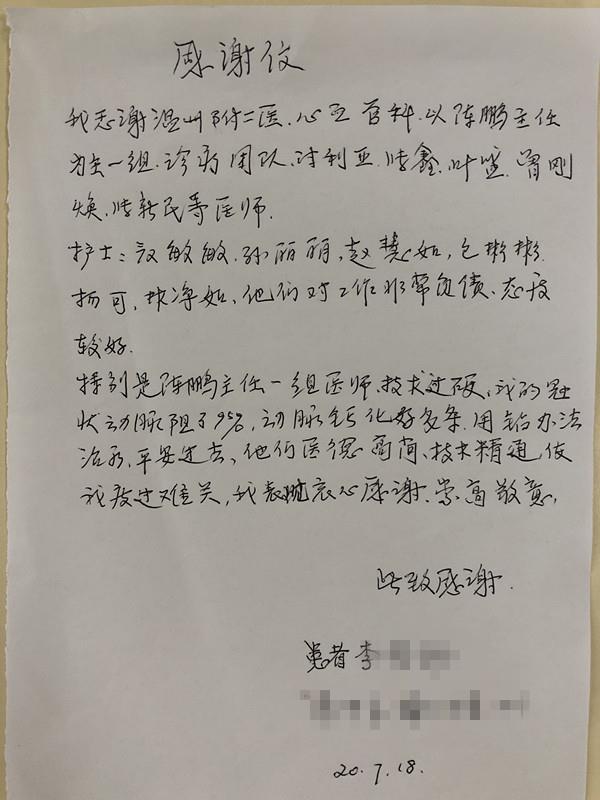 感谢信
我感谢温州附二医.心血管科.以陈鹏主任
为主一组.诊疗团队.
焕.新民等医师.
护士：敏敏.孙丽丽,赵慧如,包彬彬.
杨可,林净如,他们对工作非常负责、态度
较好.
特别是陈鹏主任一组医师,技术过硬,我的冠
状动脉阻了95%,动脉钙化好多条.用钻办法
治疗,平安过去、他们医德高尚、技术精通,使
我度过难关,我表衷心感谢.崇高敬意,
此致感谢.
患者李
20.7.18.